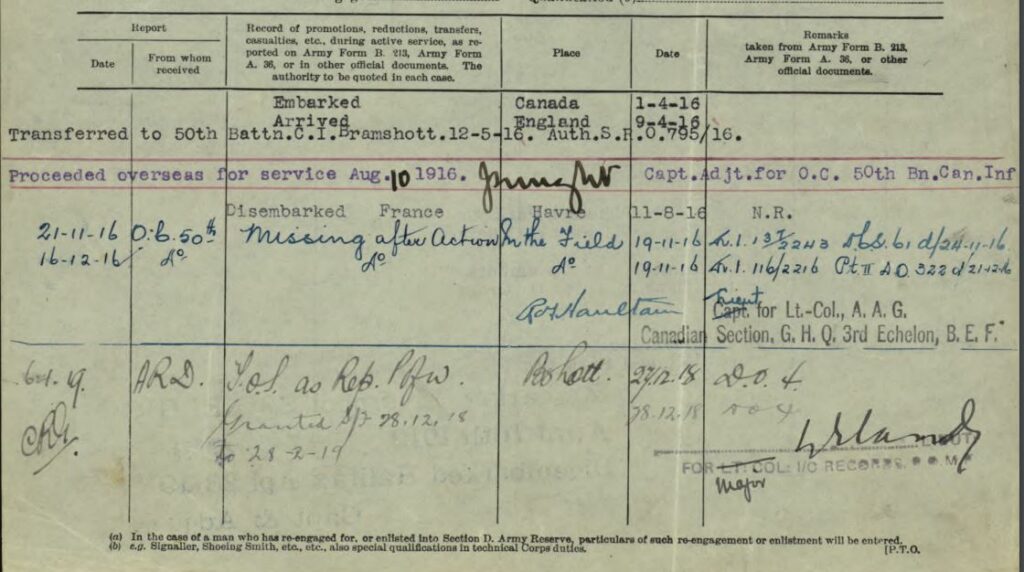 Report
Date
From whom
received
Record of promotions, reductions, transfers,
casualties, etc., during active service, as re-
ported on Army Form B. 213, Army Form
A. 36, or in other official documents. The
authority to be quoted in each case.
Place
Date
Remarks
taken from Army Form B. 213,
Army Form A. 36, or other
official documents.
Embarked Canada 1-4-16
Arrived England 9-4-16
Transferred to 50th Battn.C.I.Bramshott.12-5-16. Auth.S.R.O.795/16.
Proceeded overseas for service Aug.10 1916. Capt.Adjt.for O.C. 50th Bn.Can.Inf
Disembarked France Havre 11-8-16 N.R.
21-11-16 O.C. 50th Missing after Action In the Field 19-11-16 d/24-11-16.
16-12-16 do do do 19-11-16 116/2216 Pt II D.O. 322 d 21-12-16
Lieut
Capt. for Lt.-Col., A. A. G.
Canadian Section, G. H. Q. 3rd Echelon, B. E. F.
19. A.R.D. T.O.S. as Rep. P of W. 27.12.18 D.O. 4.
Granted 28.12.18 28.12.18 D.O. 4
to 28-2-19
LIEUT
FOR LT. COL: I/C RECORDS,
Major
(a) In the case of a man who has re-engaged for, or enlisted into Section D. Army Reserve, particulars of such re-engagement or enlistment will be entered.
(b) e.g. Signaller, Shoeing Smith, etc., etc., also special qualifications in technical Corps duties.
[P.T.O.